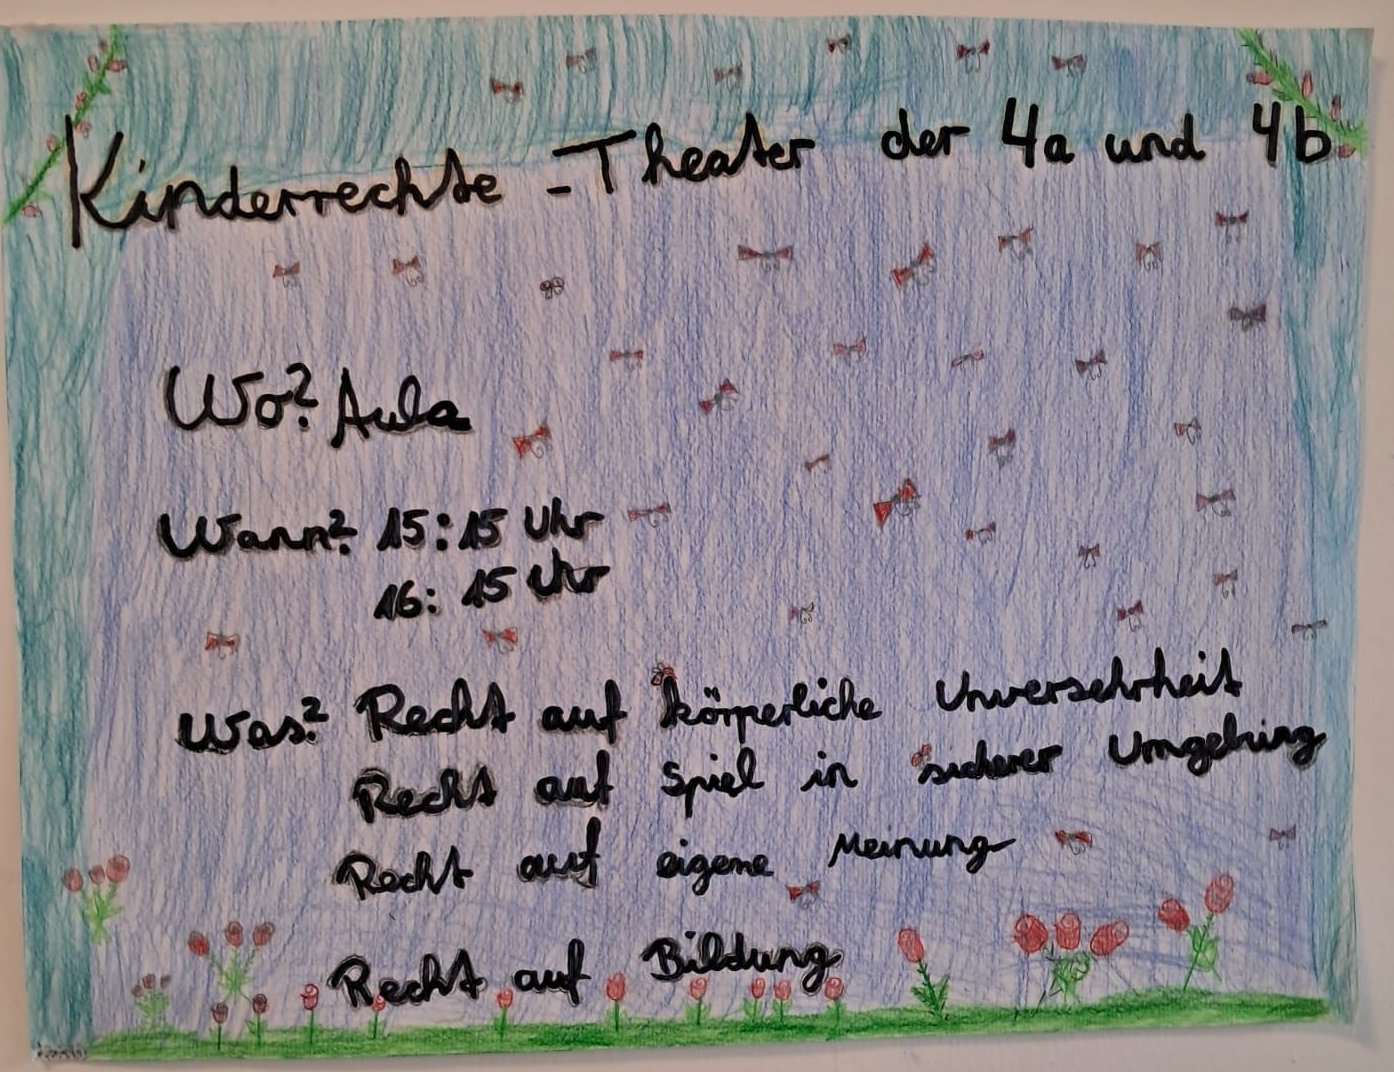 Kinderrechte - Theater der 4a und 4b
Wo? Aula
Wann? 15:15 Uhr
16:15 Uhr
Was? Recht auf körperliche Unversehrheit
Recht auf Spiel in sicherer Umgebung
Recht auf eigene Meinung
Recht auf Bildung